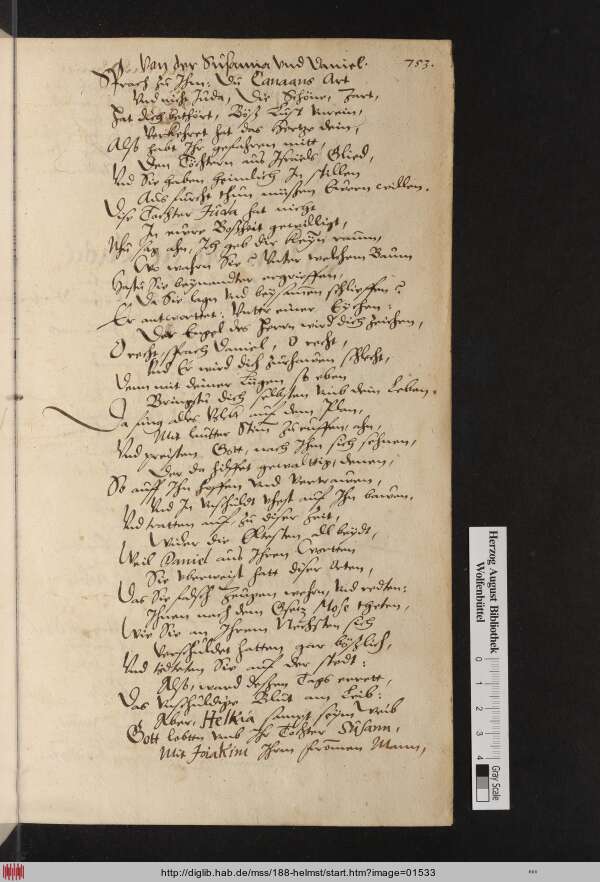 Von der Susanna vnd Daniel.
753.
Sprach zu Ihm: Du Canaans Art
Vnd nicht Juda, Die Schöne, Zart,
Hat dich bethört, Böß Lust vnrein,
Verkehret hat das Hertze dein,
Also habt Ihr gefahren mitt,
Den Töchtern aus Israels Glied,
Vnd Sie haben heimlich In stillen
Aus furcht thun müssen Euern willen.
Dise Tochter Juda hat nicht
In euere Boßheit gewilligt,
Nhu sag ahn, Ich geb dir keyn raum,
Wo wahrn Sie? Vnter welchem Baum
Hastu Sie beynander ergrieffen,
Da Sie lagn vnd beysamen schlieffen?
Er antwortet: Vnter einer Eychen:
Der Engel des Herrn wird dich zeichen,
O recht, sprach Daniel, O recht,
Vnd Er wird dich zurhawen schlecht,
Denn mit deiner Lügen so eben
Bringstu dich selbsten umb dein Leben.
Da fing alles Volck auf dem Plan,
Mit lautter Stim zu ruffen, ahn,
Vnd preisten Gott, nach Ihm sich sehnen,
Der da hilffet gewalttig, denen,
So auff Ihn hoffen vnd vertrawen,
Vnd In Vnschuldt vhest auf Ihn bawen.
Vnd tratten auf zu diser Zeit,
Wider die Eltesten all beydt,
Weil Daniel aus Ihren Wortten
Sie vberweist hatt diser Orten,
Das Sie falsch Zeugen wehen, vnd redten:
Ihnen nach dem Gsetz Mose theten,
Wie Sie an Ihrem Nechsten sich
Verschuldet hatten gar bößlich,
Vnd tödteten Sie auf der stedt:
Also, ward desßen Tags errett,
Das Vnschuldige Blut am Leib:
Aber, Helkia sampt seym Weib
Gott lobten vmb Ihr Tochter Susann,
Mit Joiakim Ihrm frommen Mann,
Herzog August Bibliothek
Wolfenbüttel
0 1 2 3 4
Gray Scale
http://diglib.hab.de/mss/188-helmst/start.htm?image=01533